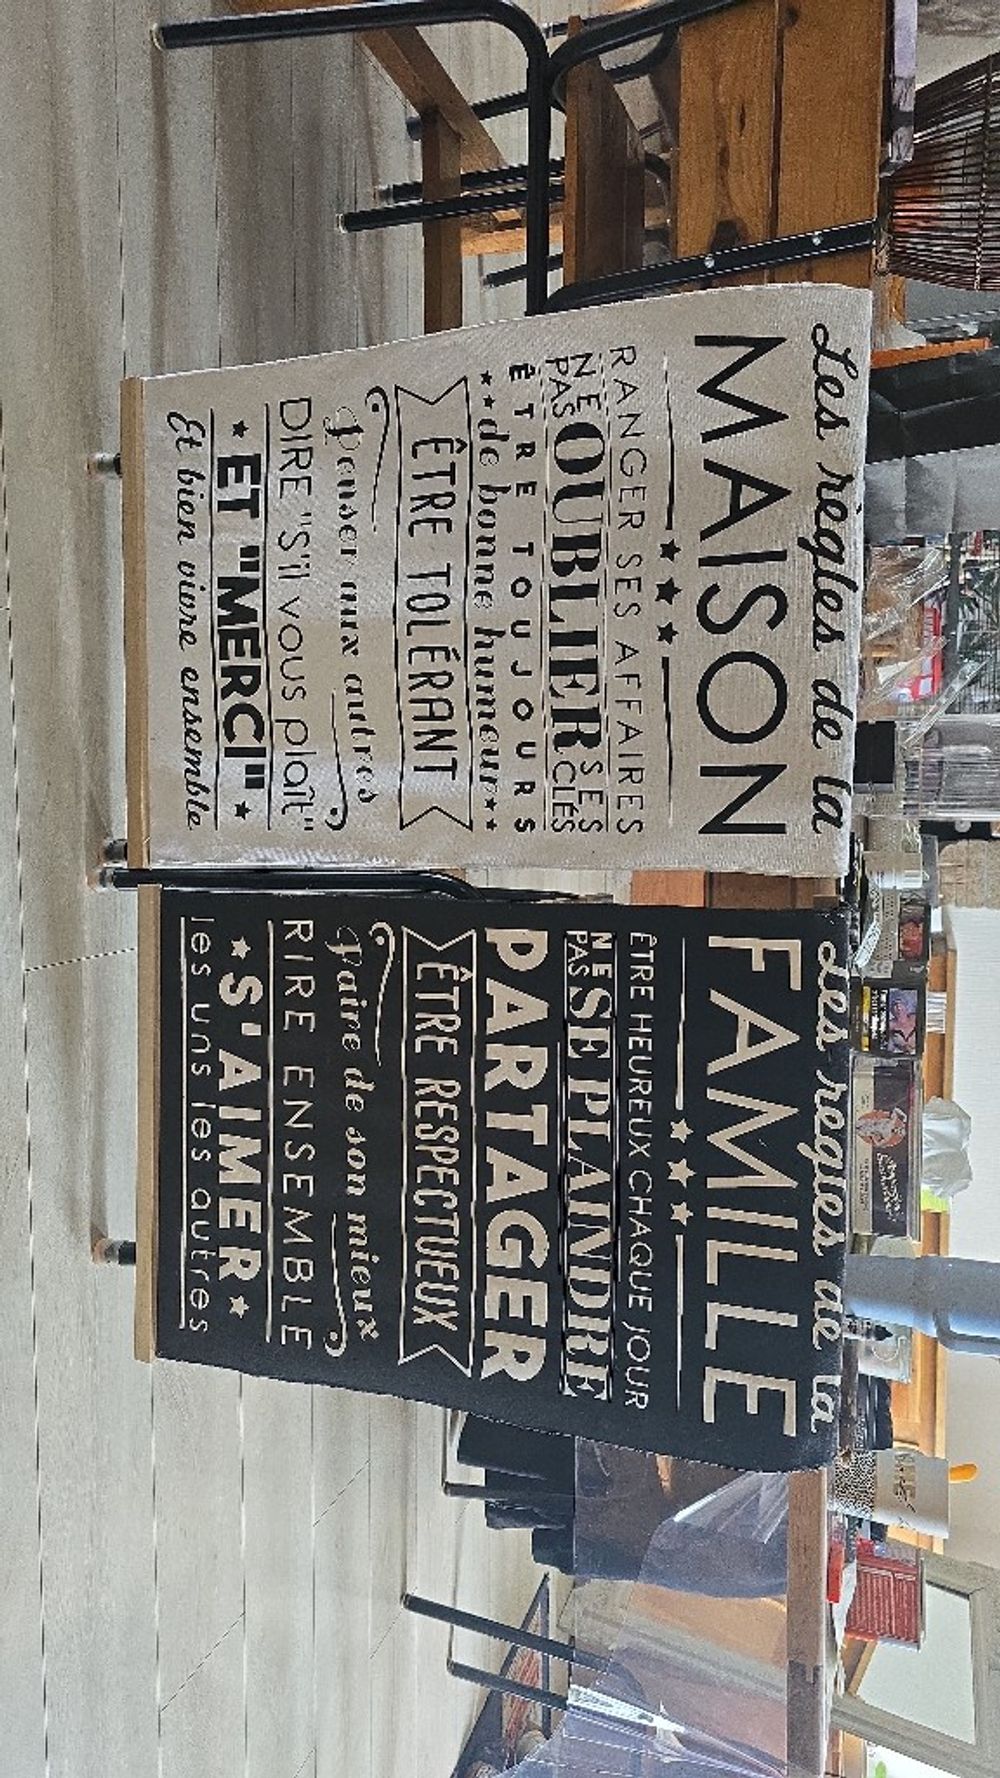 Les règles de la
MAISON
RANGER SES AFFAIRES
NE PAS OUBLIER SES CLÉS
ÊTRE TOUJOURS
de bonne humeur
ÊTRE TOLÉRANT
Penser aux autres
DIRE "S'il vous plaît"
ET "MERCI"
Et bien vivre ensemble
Les règles de la
FAMILLE
ÊTRE HEUREUX CHAQUE JOUR
NE PAS SE PLAINDRE
PARTAGER
ÊTRE RESPECTUEUX
Faire de son mieux
RIRE ENSEMBLE
S'AIMER
les uns les autres